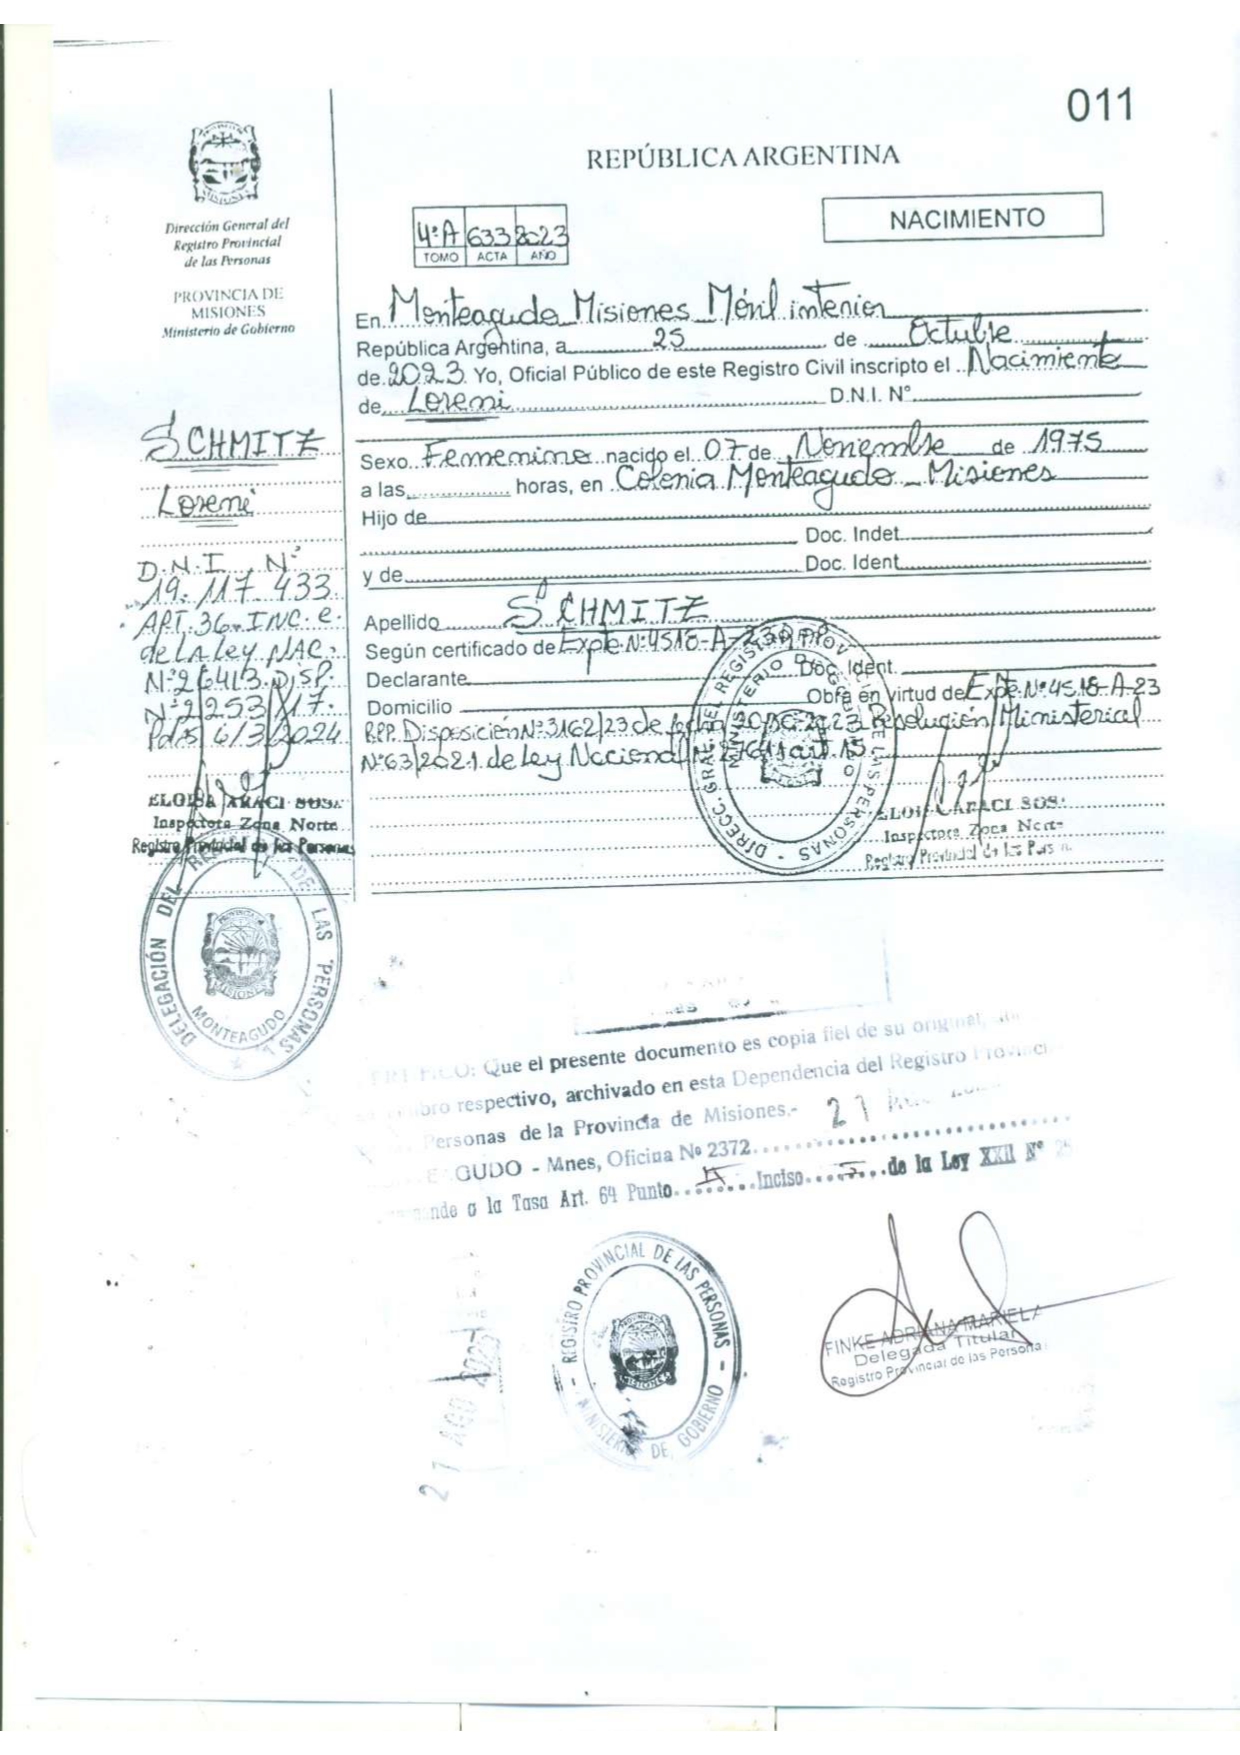 011
REPÚBLICA ARGENTINA
NACIMIENTO
Dirección General del
Registro Provincial
de las Personas
PROVINCIA DE
MISIONES
Ministerio de Gobierno
4ºA 633 2023
TOMO ACTA AÑO
En Monteagudo Misiones Móvil interior
República Argentina, a 25 de Octubre
de 2023. Yo, Oficial Público de este Registro Civil inscripto el Nacimiento
de Loreni D.N.I. Nº
Sexo Femenino nacido el 07 de Noviembre de 1975
a las horas, en Colonia Monteagudo - Misiones
Hijo de
Doc. Indet.
y de Doc. Ident.
Apellido SCHMITZ
Según certificado de Expte. Nº 4518-A-23
Declarante Doc. Ident.
Domicilio Obra en virtud de Expte. Nº 4518-A-23
RPP. Disposición Nº 3162/23 de fecha 2023 Resolución Ministerial
Nº 63/2021. de Ley Nacional Nº art. 15
SCHMITZ
Loreni
D.N.I. Nº
19.117.433
ART. 36. INC. e.
de LA Ley NAC.
Nº 26413. DISP.
Nº 2253/17.
Pdas 6/3/2024
ELOISA ARACI SOSA
Inspectora Zona Norte
Registro Provincial de las Personas
ELOISA ARACI SOSA
Inspectora Zona Norte
Registro Provincial de las Personas
DIRECC. GRAL. DEL REGISTRO PROV. DE LAS PERSONAS
MINISTERIO DE GOBIERNO
DELEGACIÓN DEL REG. DE LAS PERSONAS
MONTEAGUDO
MISIONES
CERTIFICO: Que el presente documento es copia fiel de su original,
libro respectivo, archivado en esta Dependencia del Registro Provincial
Personas de la Provincia de Misiones.- 21
GUDO - Mnes, Oficina Nº 2372
a la Tasa Art. 64 Punto Inciso de la Ley XXII Nº
21 AGO 2025
REGISTRO PROVINCIAL DE LAS PERSONAS -
MINISTERIO DE GOBIERNO
FINKE ADRIANA MARIELA
Delegada Titular
Registro Provincial de las Personas